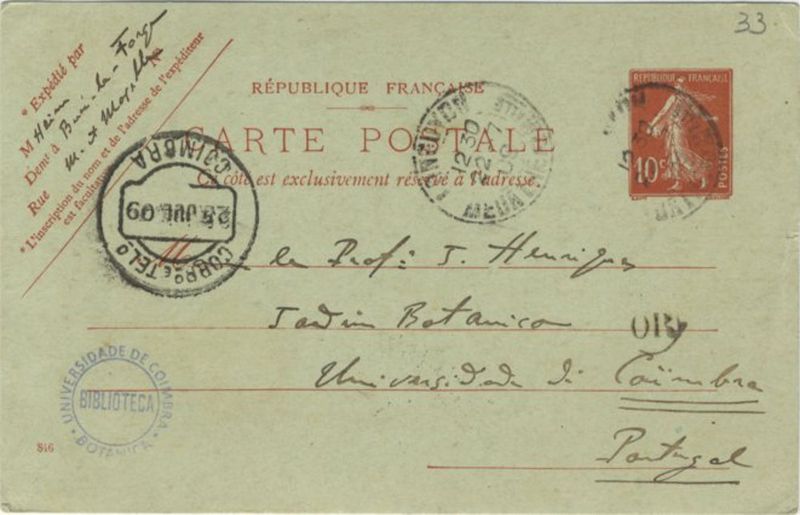 33
* Expédié par
M Heim
Demt à Buré-la-Forge
Rue M. et Moselle Nº
* L'inscription du nom et de l'adresse de l'expéditeur
est facultative.
RÉPUBLIQUE FRANÇAISE
CARTE POSTALE
Ce côté est exclusivement réservé à l'adresse.
RÉPUBLIQUE FRANÇAISE
10c
POSTES
LONGUYON
12 30
22
MEURTHE
COIMBRA
25 JUL 09
CORRO E TELO
M le Profr J. Henriques
Jardim Botanico
OR
Universidade di Coïmbra
Portugal
UNIVERSIDADE DE COIMBRA
BIBLIOTECA
* BOTANICA *
846